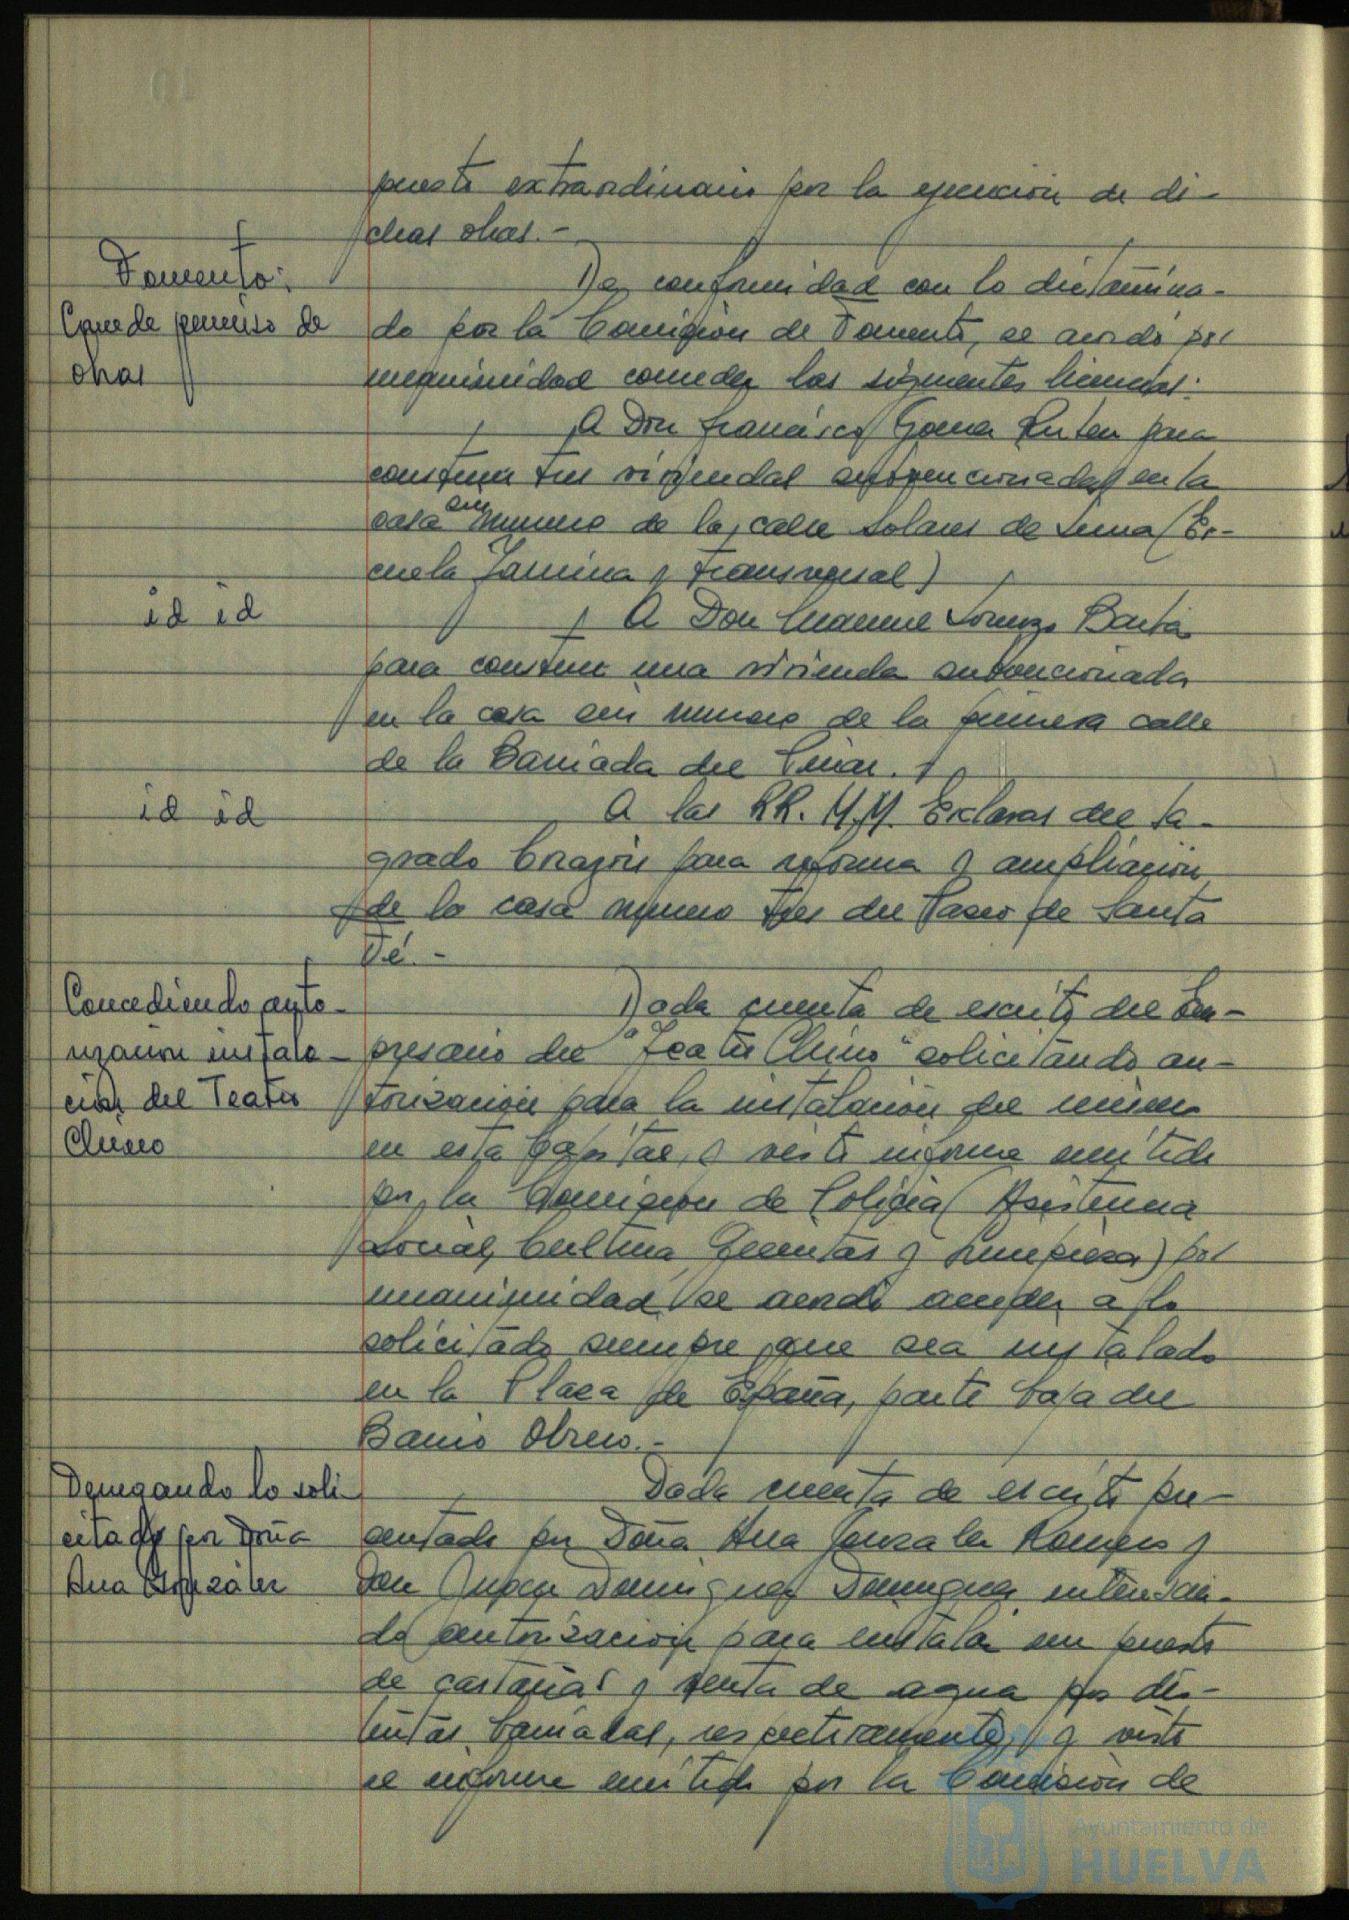 puesto extraordinario por la ejecución de di-
chas obras.-
Fomento:
Concede permiso de
obras
De conformidad con lo dictamina-
do por la Comisión de Fomento, se acordó por
unanimidad conceder las siguientes licencias:
A Don Francisco Gomez para
construir tres viviendas subvencionadas en la
casa sin numero de la calle Solares de (Es-
cuela y transversal)
id id
A Don Manuel Lorenzo
para construir una vivienda subvencionada
en la casa sin numero de la primera calle
de la Barriada del Pinar.
id id
A las RR. M.M. Esclavas del Sa-
grado Corazón para reforma y ampliación
de la casa numero tres del Paseo de Santa
Fé.-
Concediendo auto-
rización instala-
ción del Teatro
Chino
Dada cuenta de escrito del Em-
presario del "Teatro Chino" solicitando au-
torización para la instalación del mismo
en esta Capital, y visto informe emitido
por la Comisión de Policia (Asistencia
Social, Cultura, y Limpieza) por
unanimidad se acordó acceder a lo
solicitado siempre que sea instalado
en la Plaza de España, parte baja del
Barrio Obrero.-
Denegando lo soli-
citado por Doña
Ana González
Dada cuenta de escrito pre-
sentado por Doña Ana Gonzalez Romero y
Don Juan Dominguez Dominguez interesan-
do autorización para instalar un puesto
de castañas y venta de agua por dis-
tintas barriadas, respectivamente, y visto
el informe emitido por la Comisión de
Ayuntamiento de
HUELVA